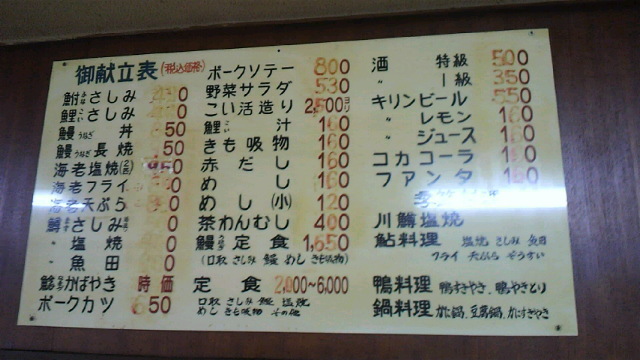 御献立表(税込価格)
鮒さしみ
鯉こいさしみ
鰻うなぎ丼 50
鰻うなぎ長焼 50
海老塩焼(2尾) 50
海老フライ
海老天ぷら
鱒ますさしみ
〃 塩焼
〃 魚田
かばやき 時価
ポークカツ 650
ポークソテー 800
野菜サラダ 530
こい活造り 2,500ヨリ
鯉こい汁 160
きも吸物 160
赤だし 160
めし 160
めし(小) 120
茶わんむし 400
鰻定食 1,650
(口取 さしみ 鰻 めし きも吸物)
定食 2,000~6,000
口取 さしみ 鰻 塩焼
めし きも吸物 その他
酒 特級 500
〃 一級 350
キリンビール 550
〃 レモン 160
〃 ジュース 160
コカコーラ 160
ファンタ 160
川鱒塩焼
鮎料理 塩焼 さしみ 魚田
フライ 天ぷら ぞうすい
鴨料理 鴨すきやき、鴨やきとり
鍋料理 かに鍋、豆腐鍋、かにすきやき